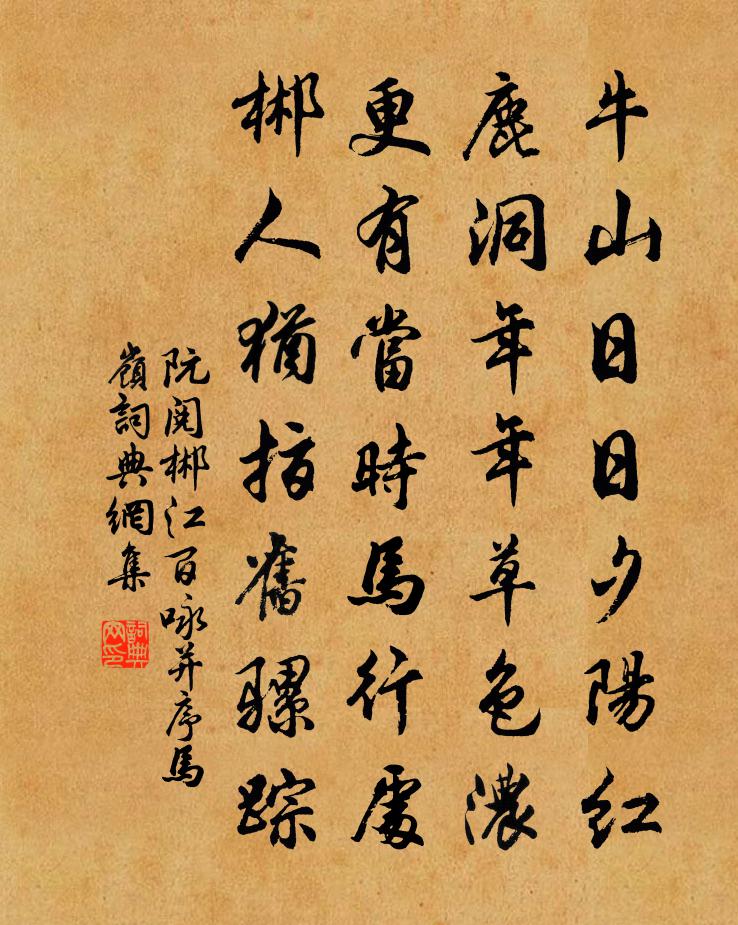 牛山日日夕陽紅
鹿洞年年草色濃
更有當時馬行處
郴人猶指舊騾踪
阮閱郴江百咏并序馬
嶺詞典網集
詞典
网印